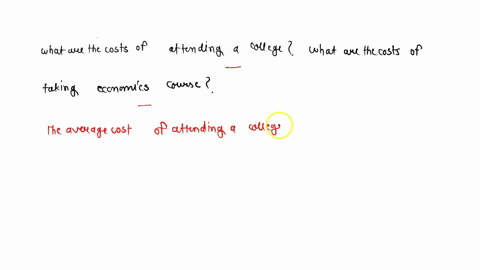 what are the costs of attending a college? what are the costs of
taking economics course?
The average cost of attending a colleg